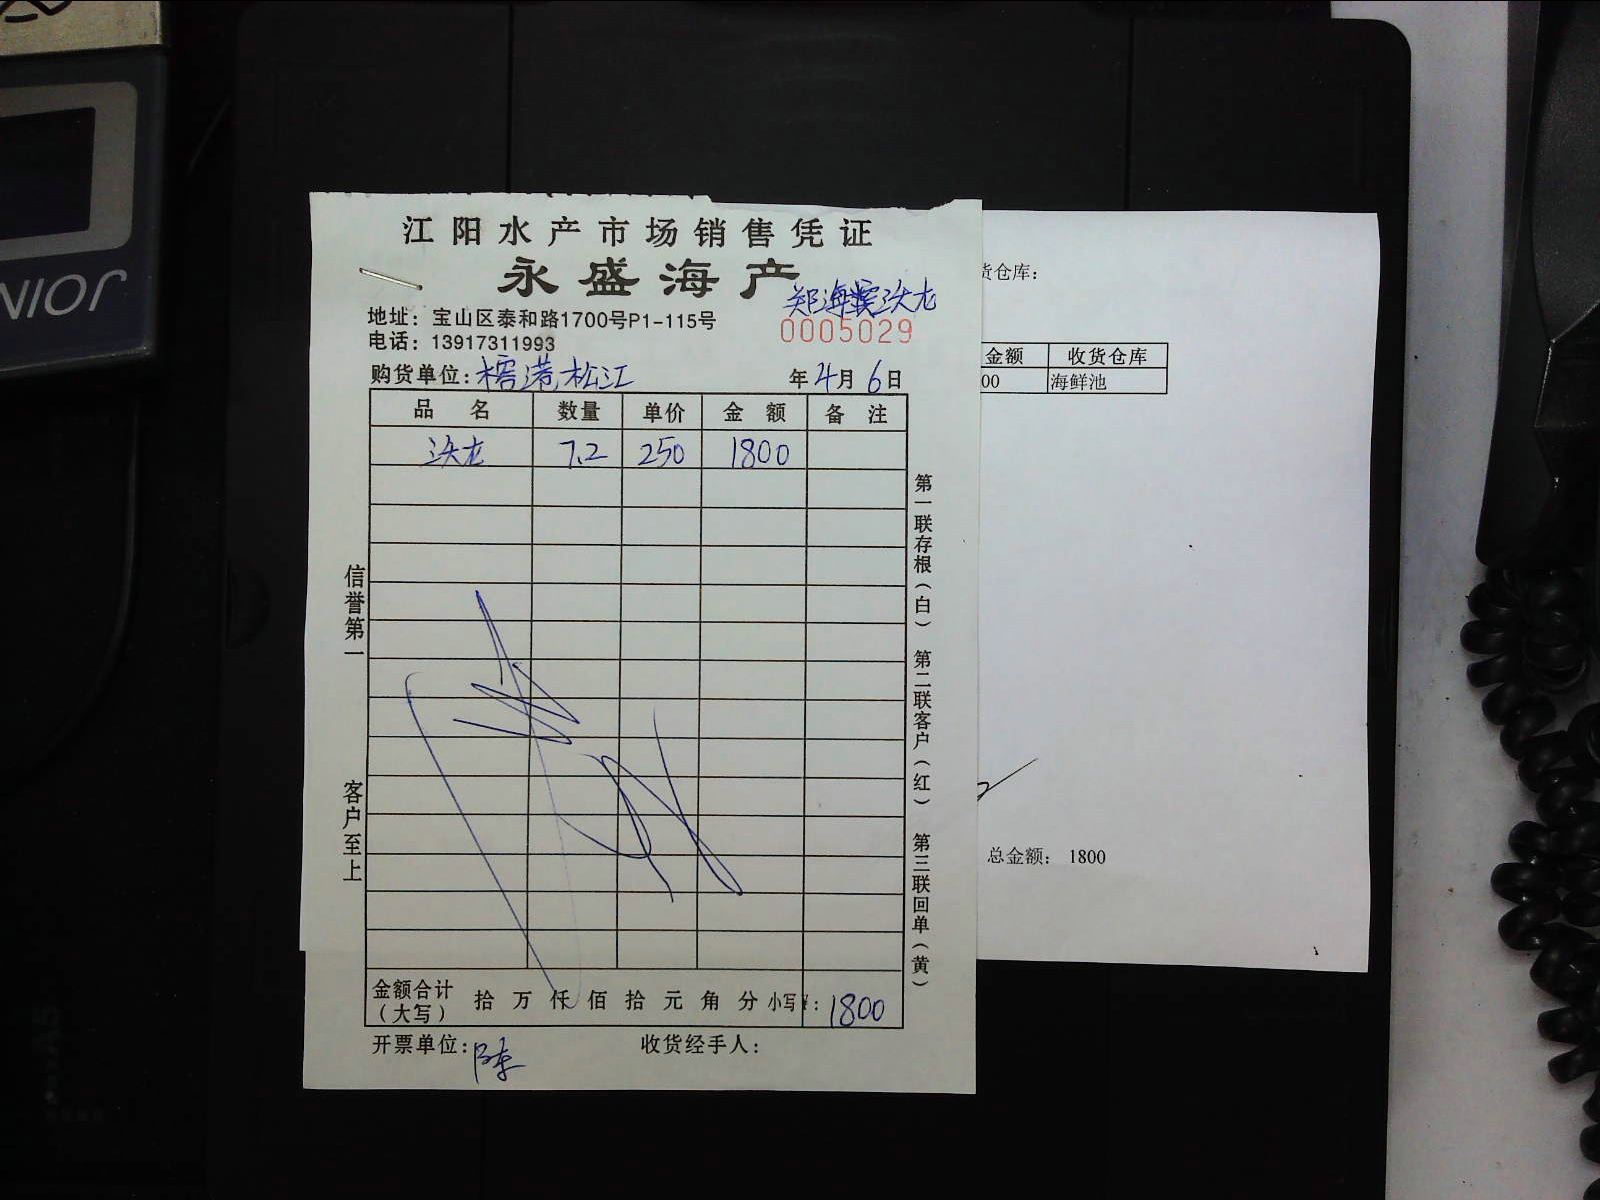 江阳水产市场销售凭证
永盛海产
郑海 沃龙
地址：宝山区泰和路1700号P1-115号
0005029
电话：13917311993
购货单位：榕港.松江
年 4月 6日
品 名 数量 单价 金 额 备 注
沃龙 7.2 250 1800
信誉第一
客户至上
第一联存根（白） 第二联客户（红） 第三联回单（黄）
金额合计（大写） 拾 万 仟 佰 拾 元 角 分 小写¥：1800
开票单位：陈
收货经手人：
货仓库：
金额 收货仓库
00 海鲜池
总金额： 1800
NIOR